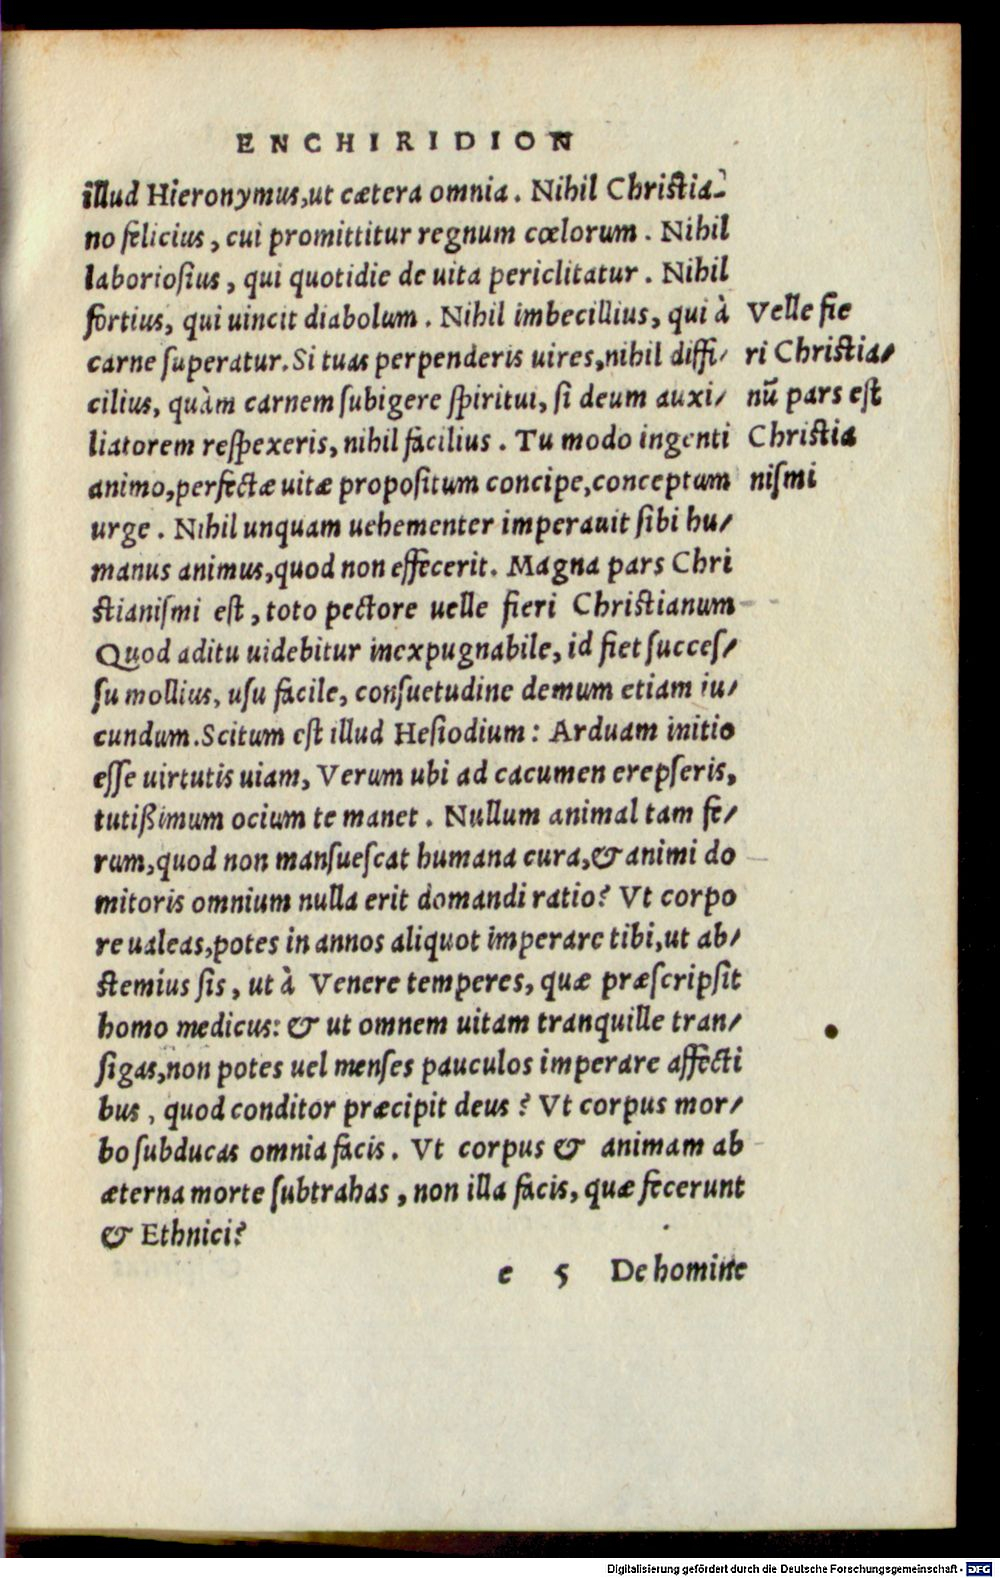 ENCHIRIDION
illud Hieronymus, ut cætera omnia. Nihil Christia-
no felicius, cui promittitur regnum cœlorum. Nihil
laboriosius, qui quotidie de uita periclitatur. Nihil
fortius, qui uincit diabolum. Nihil imbecillius, qui à
carne superatur. Si tuas perpenderis uires, nihil diffi/
cilius, quàm carnem subigere spiritui, si deum auxi/
liatorem respexeris, nihil facilius. Tu modo ingenti
animo, perfectæ uitæ propositum concipe, conceptum
urge. Nihil unquam uehementer imperauit sibi hu/
manus animus, quod non effecerit. Magna pars Chri
stianismi est, toto pectore uelle fieri Christianum
Quod aditu uidebitur inexpugnabile, id fiet succes/
su mollius, usu facile, consuetudine demum etiam iu/
cundum. Scitum est illud Hesiodium: Arduam initio
esse uirtutis uiam, Verum ubi ad cacumen erepseris,
tutißimum ocium te manet. Nullum animal tam fe/
rum, quod non mansuescat humana cura, & animi do
mitoris omnium nulla erit domandi ratio? Vt corpo
re ualeas, potes in annos aliquot imperare tibi, ut ab/
stemius sis, ut à Venere temperes, quæ præscripsit
homo medicus: & ut omnem uitam tranquille tran/
sigas, non potes uel menses pauculos imperare affecti
bus, quod conditor præcipit deus? Vt corpus mor/
bo subducas omnia facis. Vt corpus & animam ab
æterna morte subtrahas, non illa facis, quæ fecerunt
& Ethnici?
e 5 De homine
Velle fie
ri Christia/
nū pars est
Christia
nismi
Digitalisierung gefördert durch die Deutsche Forschungsgemeinschaft - DFG